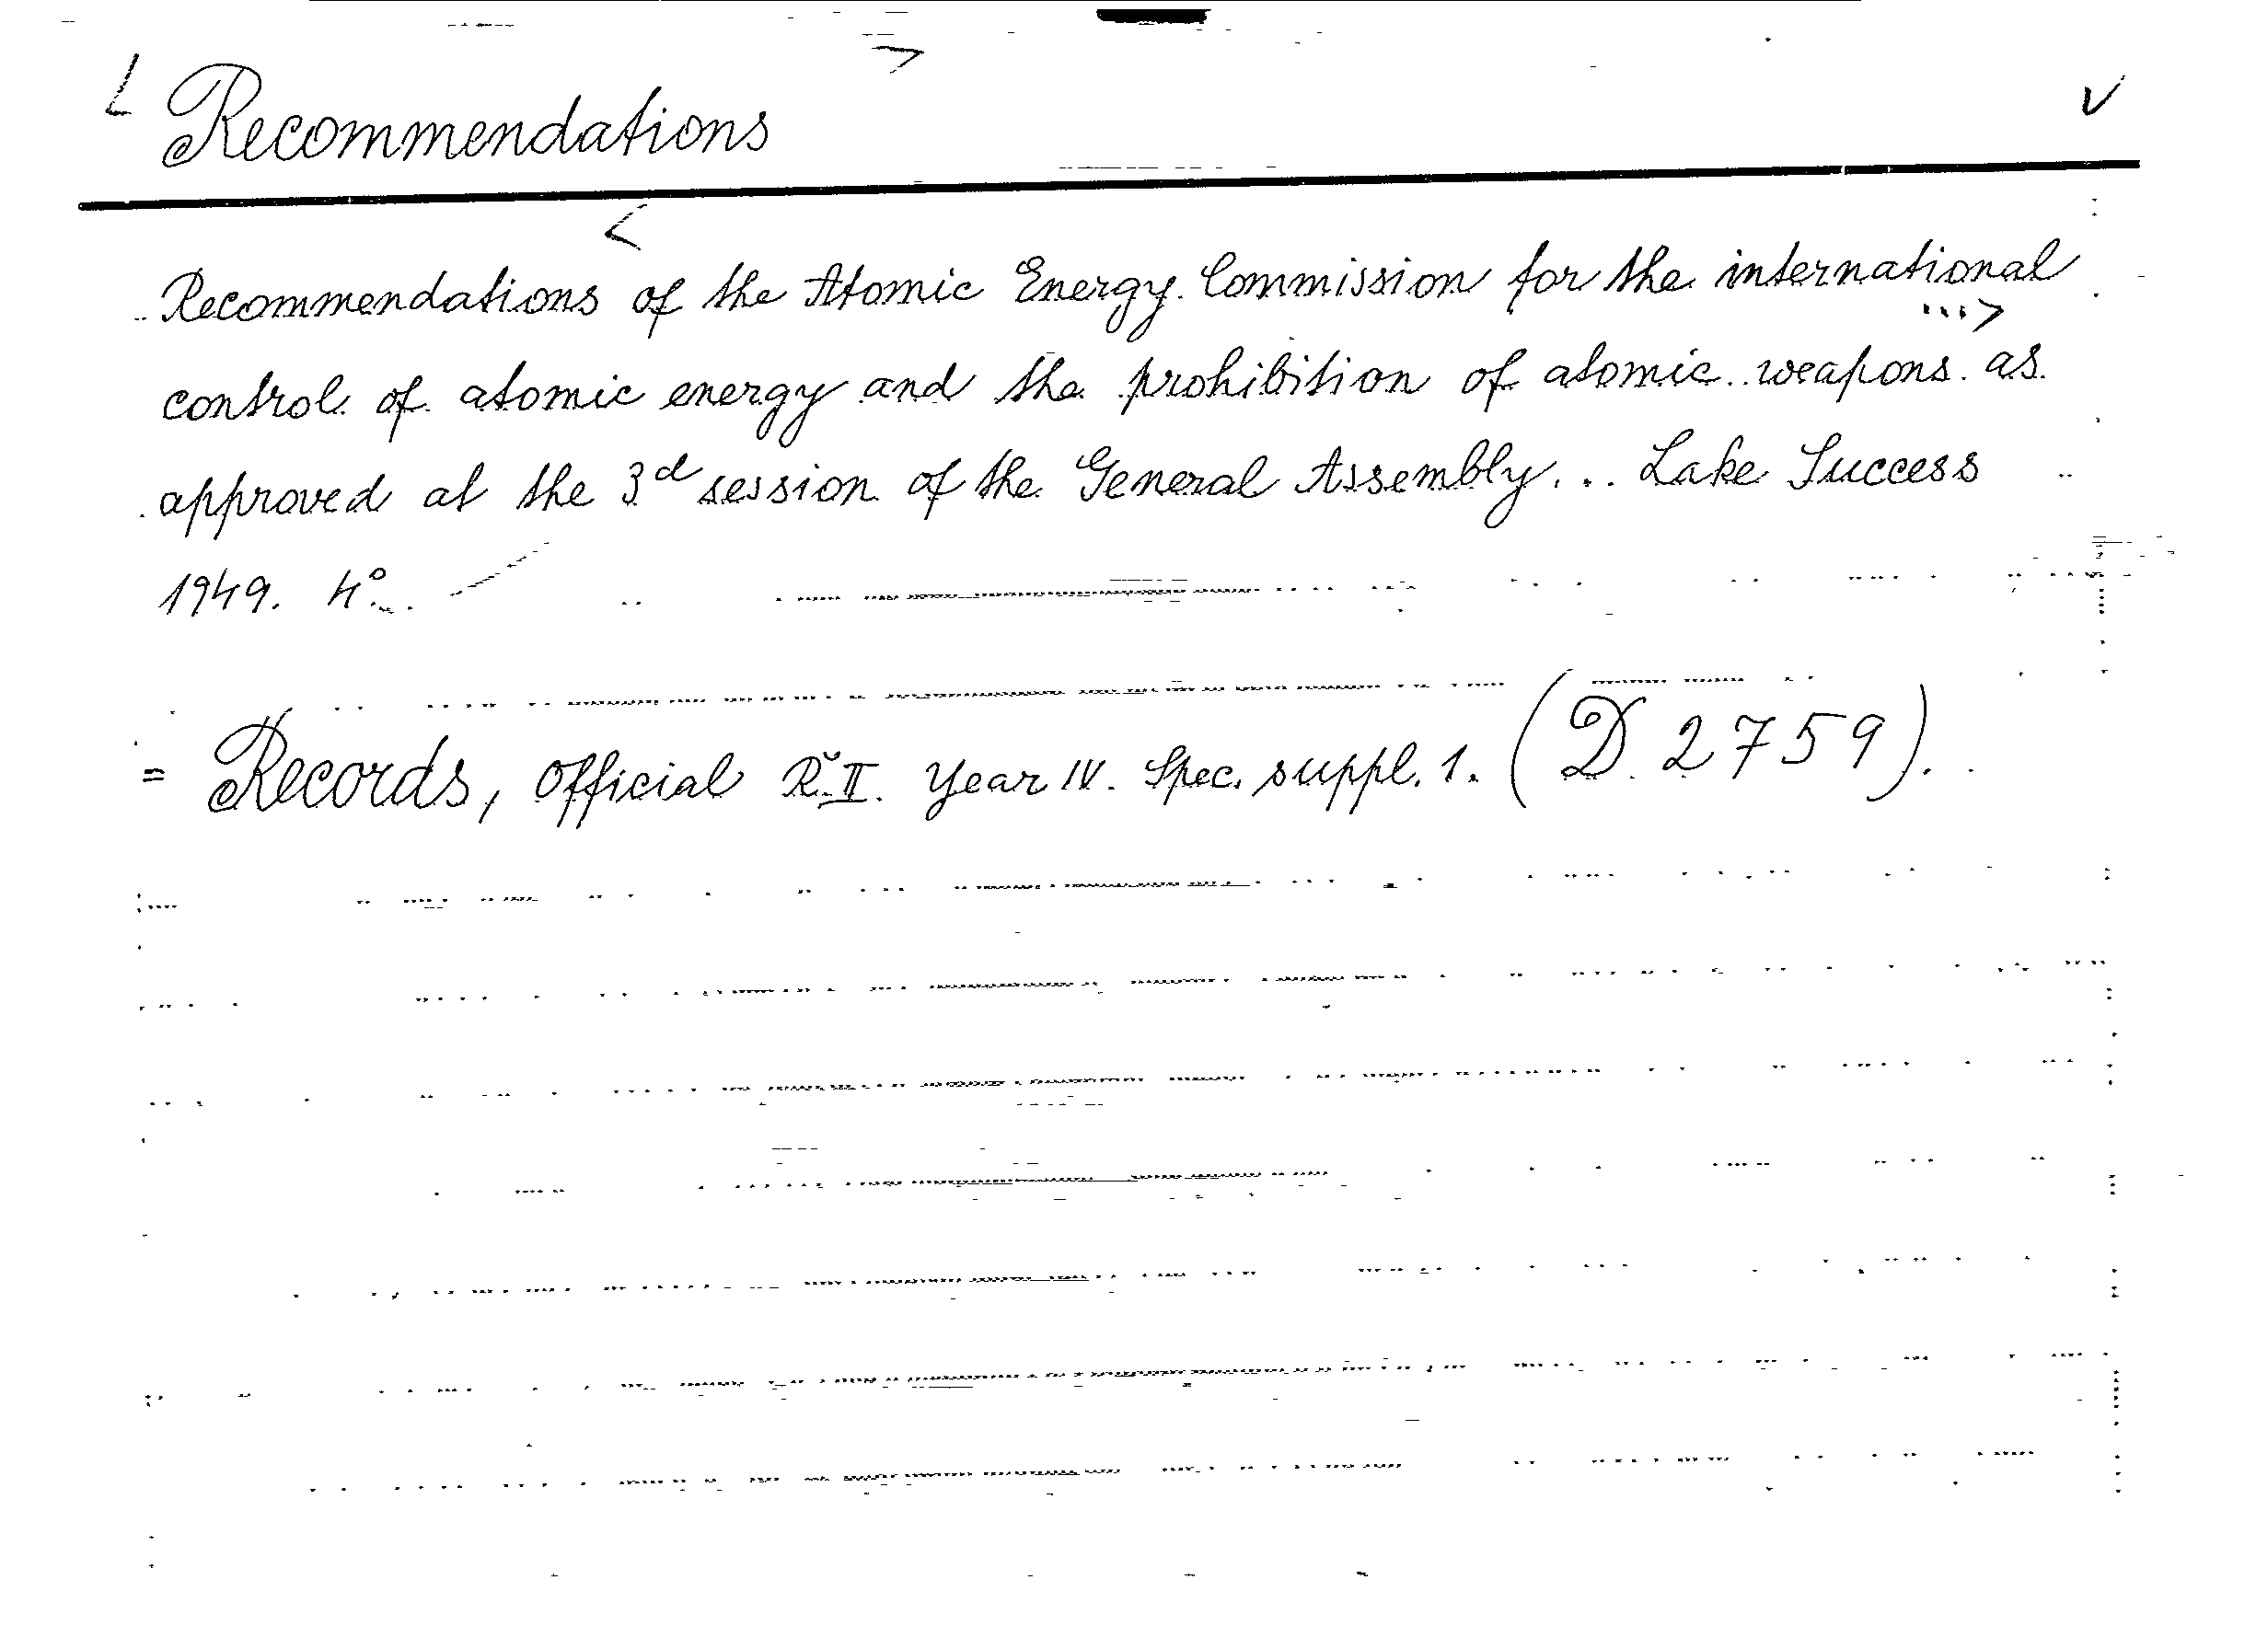 Recommendations
Recommendations of the Atomic Energy Commission for the international
control of atomic energy and the prohibition of atomic weapons as
approved at the 3d session of the General Assembly... Lake Success
1949. 4°
= Records, official Ř. II. Year IV. Spec. suppl. 1. (D 2759).